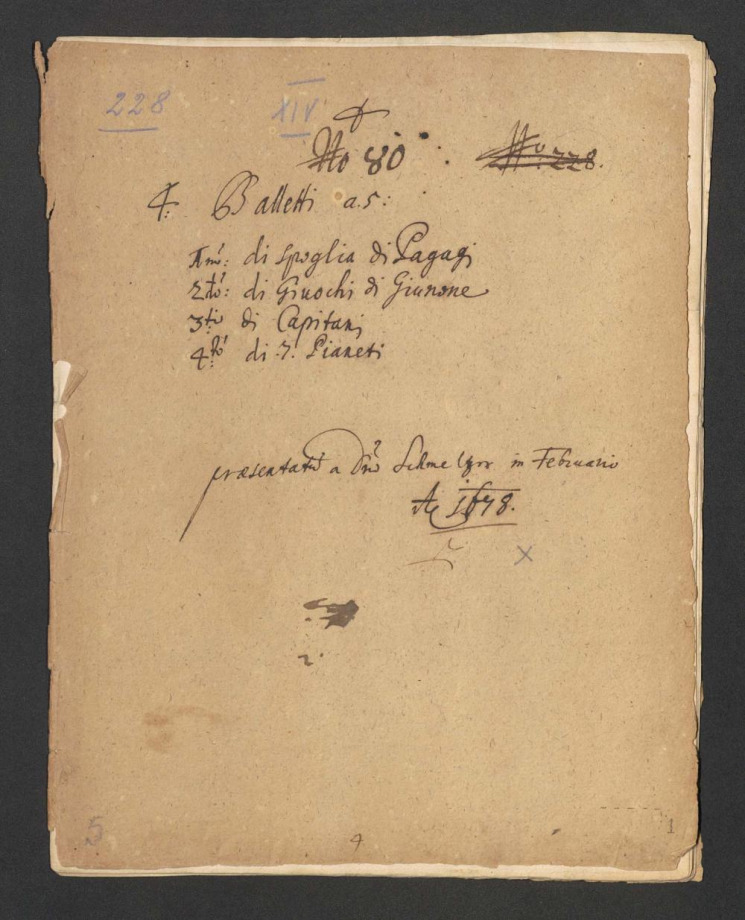 228 XIV
No 80 : No: 228.
4: Balletti a.5:
1mo: di spoglia di Pagagi
2do: di Giuochi di Giunone
3tio di Capitani
4to: di 7. Pianeti
praesentato a Dno Schmelzer in Februario
Ao 1678.
x
5 4 1